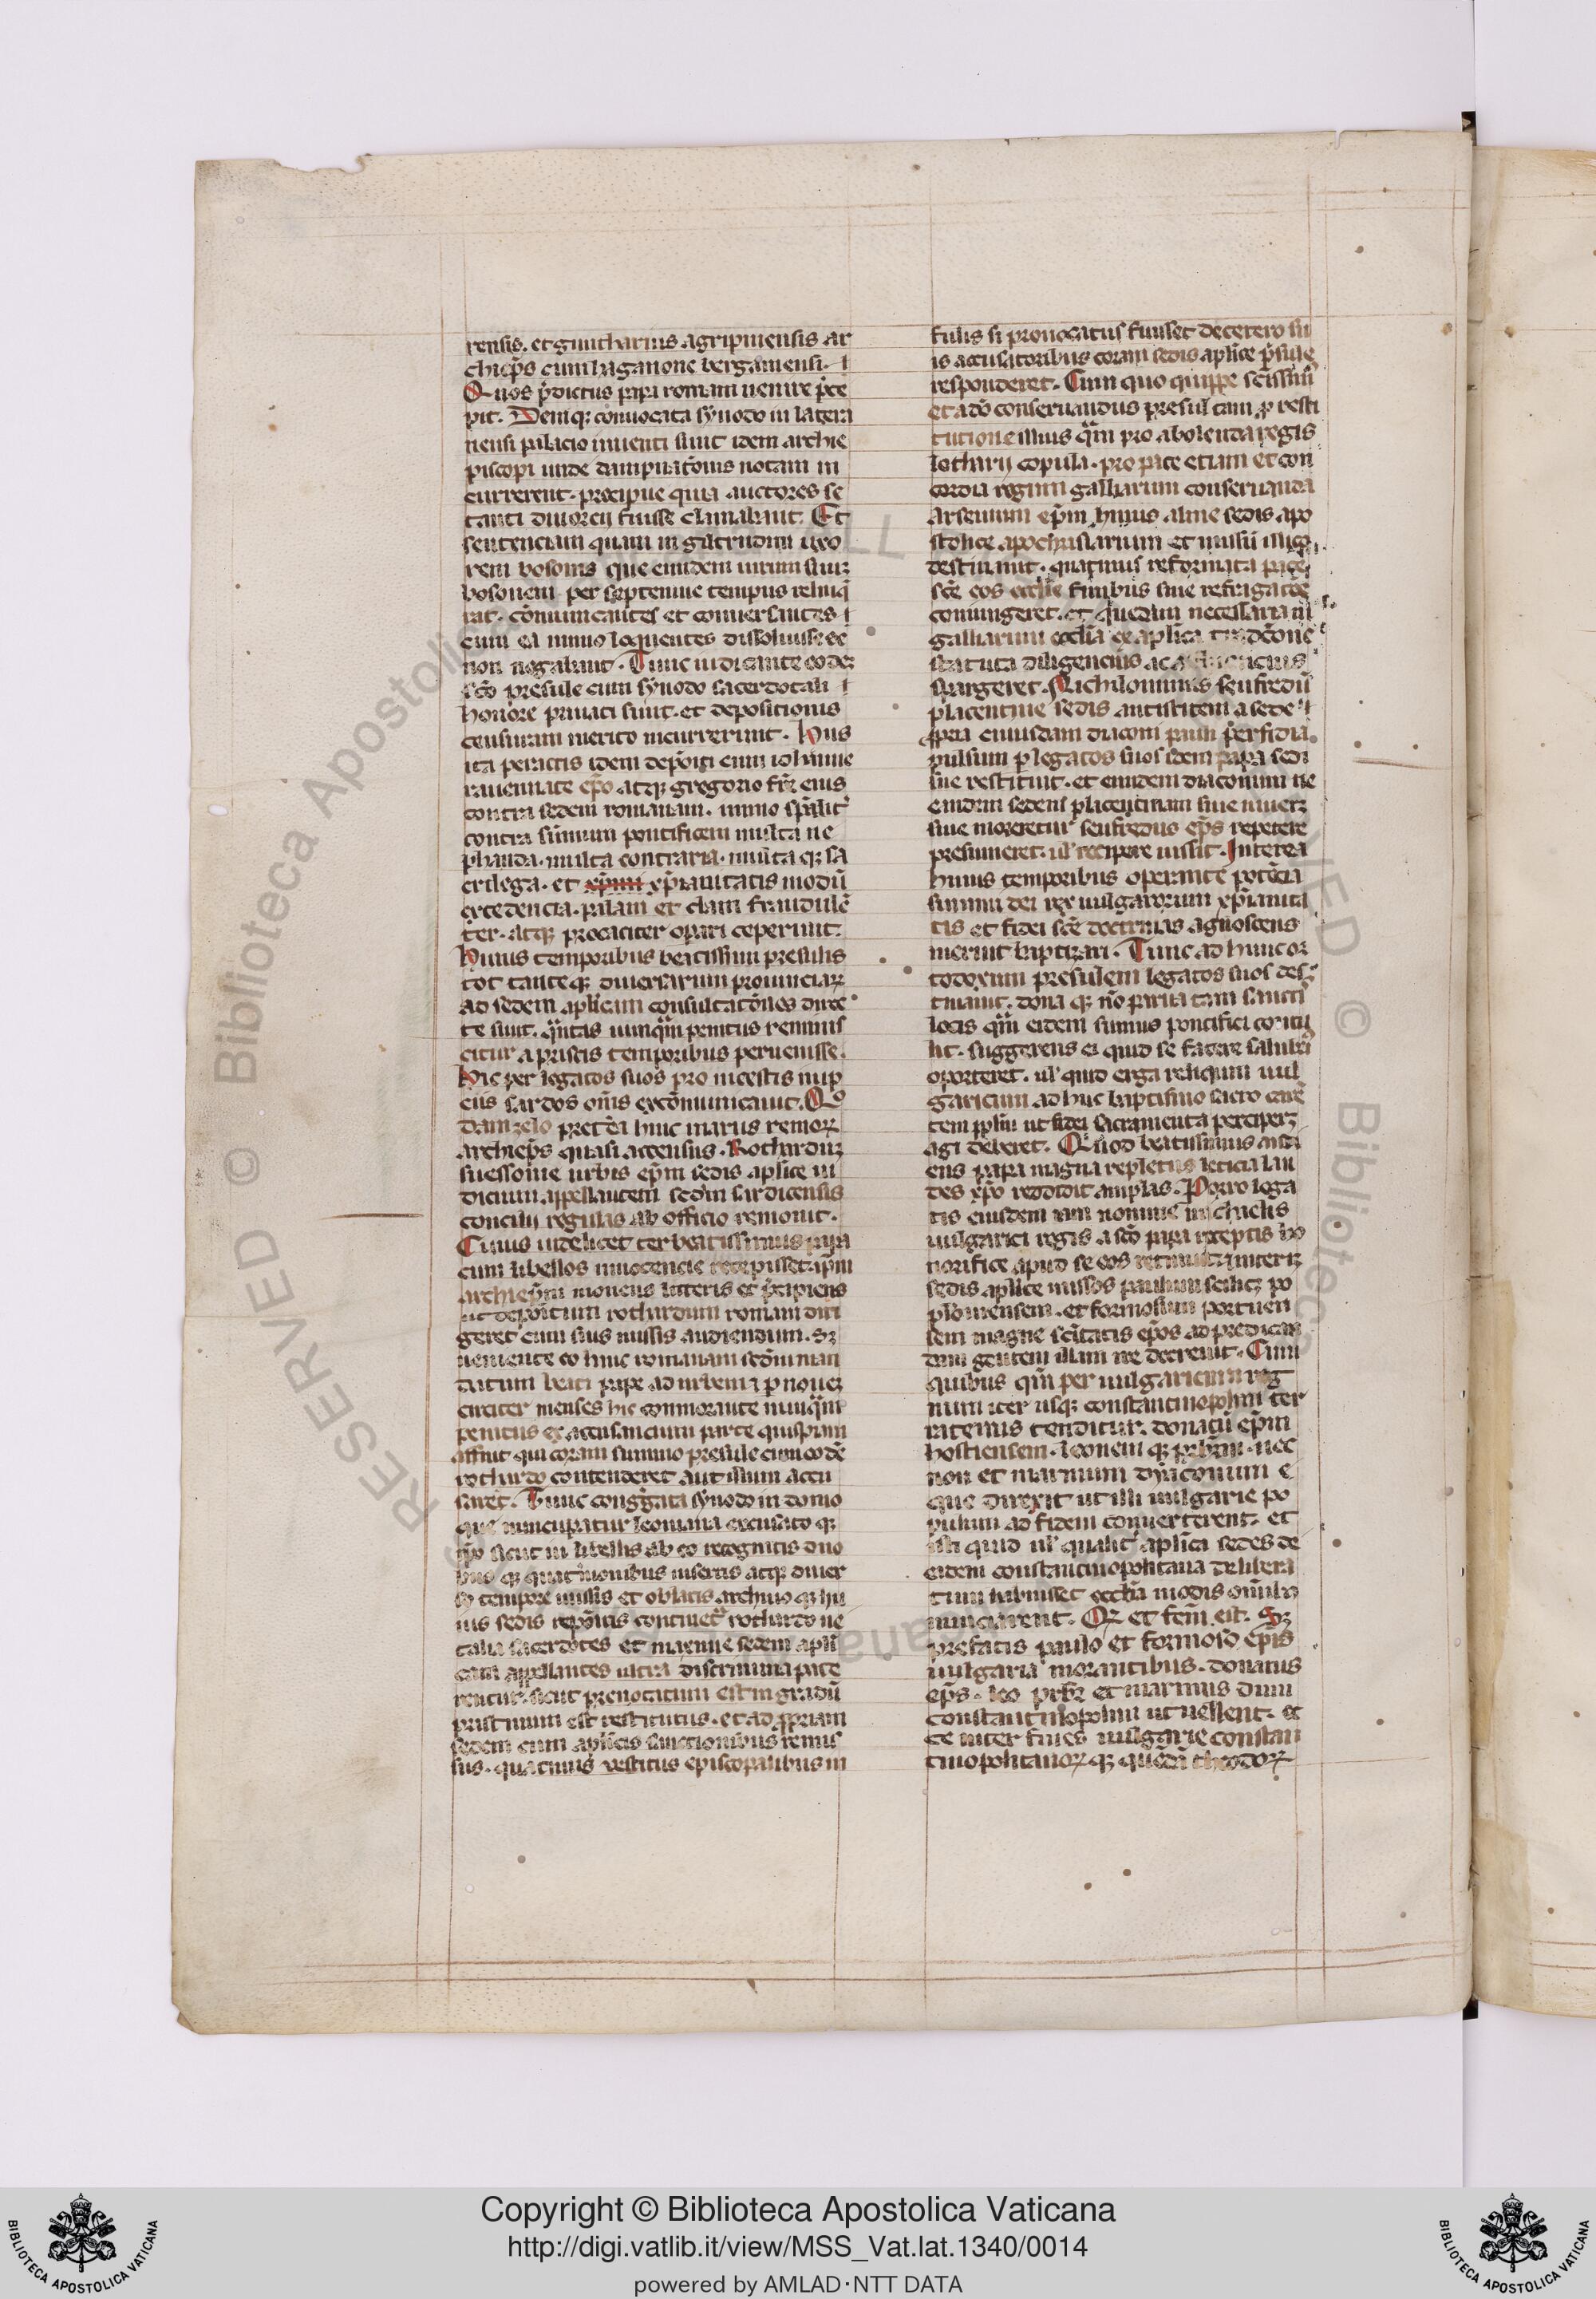 rensis. et guntharius agripinensis ar
chiep̄s cum haganone bergamensi.
Quos p̄dictus papa romam uenire p̄ce
pit. Deniq; conuocata synodo in latera
nensi palacio inuenti sunt idem archie
piscopi unde dampnat̄onis notam in
currerent. precipue quia auctores se
tanti diuorcij fuisse clamabant. Et
sentenciam quam in giltrudim uxo
rem bosonis que eundem uirum suuz
bosonem per septenne tempus reliniq̄
rat. cōmunicantes et conuersantes
cum ea immo loquentes dissoluisse se
non negabant. Tunc iudicante eodez
sc̄o presule cum synodo sacerdotali
honore priuati sunt. et depositionis
censuram merito incurrerunt. Hiis
ita peractis idem depoīti cum iohanne
rauennate ep̄o atq; gregorio fr̄e eius
contra sedem romanam. immo sp̄alit̄
contra sūmum pontificem multa ne
phanda. multa contraria. multa q; sa
crilega. et xp̄ianitatis modū
excedencia. palam et clam fraudulē
ter. atq; procaciter opari ceperunt.
Huius temporibus beatissimi presulis
tot tanteq; diuersarum prouinciaꝝ
ad sedem aplicam consultat̄ones direc
te sunt. q̄ntas nunq̄m penitus reminis
citur a priscis temporibus peruenisse.
Hic per legatos suos pro incestis nup
ciis sardos om̄is excōmunicauit. Quo
dam zelo pret̄ea hinc marus remoꝝ
archiep̄s quasi accensus. Rotharduz
suessonie urbis ep̄m sedis aplice iu
dicium appellantem sec̄dm sardicensis
concilij regulas ab officio remouit.
Cuius uidelicet ter beatissimus papa
cum libellos innocencie recepisset ip̄m
archiep̄m monens litteris et p̄cipiens
ut depoīitum rothardum romam diri
geret cum suis missis audiendum. Sz
ueniente eo hinc romanam sec̄dm man
datum beati pape ad urbem ꝛ p nouez
circiter menses hic commorante nunq̄m
penitus ex accusancium parte quispiam
affuit qui coram summo presule cum eodē
rothardo contenderet aut illum accu
saret. Tunc congr̄gata synodo in domo
que nuncupatur leoniana excusato q;
ip̄o sicut in libellis ab eo recognitis duo
bus q; quat̄nionibus insertis atq; diuer
so tempore missis et oblatis archiuo q; hu
ius sedis repoītis continet̄ rothardo ne
talia sacerdotes et maxime sedem apli
cam appellantes ultra discrimina pate
rentur. sicut prenotatum est in gradū
pristinum est restitutus. et ad ꝓpriam
sedem cum aplicis sanctionibus remis
sus. quatinus restitus episcopalibus in
fulis si prouocatus fuisset decetero su
is accusatoribus coram sedis aplice p̄sule
responderet. Cum quo quippe sc̄issimū
et ad̄o conseruandus presul tam ꝓ resti
tutione illius q̄m pro abolenda regis
lotharij copula. pro pace etiam et con
cordia regum galliarum conseruanda
Arsenium ep̄m huius alme sedis apo
stolice apochrisiarium et missū illico
destinauit. quatinus reformata pace
sc̄e eos eccl̄ie finibus siue refragat̄oe
coniungeret. et quedam necessaria in
galliarum eccl̄ia ex aplica tradic̄one
statuta diligencius ac
sanrgeret. Nichilominus seufredū
placentine sedis antistitem a sede
ꝓpria cuiusdam diaconi pauli perfidia
pulsum p legatos suos idem papa sedi
sue restituit. et eundem diaconum ne
eandem sedem placentinam siue uiuerz
siue moreretur seufredus ep̄s repetere
presumeret. ul' recipere iussit. Interea
huius temporibus operante potēcia
summi dei rex uulgarorum xp̄ianita
tis et fidei sc̄e doctrinas agnoscens
meruit baptizari. Tunc ad hunc or
todoxum presulem legatos suos des
tinauit. dona q; nō parua tam sanctis
locis q̄m eidem summo pontifici contu
lit. suggerens ei quid se facere salubri
oporteret. ul' quid erga reliquum uul
garicum adhuc baptismo sacro caren
tem pplm ut fidei sacramenta perciperz
agi deberet. Quod beatissimus audi
ens papa magna repletus leticia lau
des xp̄o reddidit amplas. Porro lega
tis eiusdem iam nomine michaelis
uulgarici regis a sc̄o papa receptis ho
norifice apud se eos
sedis aplice missos paulum scilicz po
plonensem. et formosum portuen
sem magne sc̄itatis ep̄os ad predican
dam gentem illam ire decreuit. Cum
quibus q̄m per uulgaricum reg
num iter usq; constantinopolim ter
ratenus tenditur. donatū ep̄m
hostiensem. leonem q; prb̄m. nec
non et marinum dyaconum e
que direxit ut illi uulgarie po
pulum ad fidem conuerterent. et
isti quid ul' qualit̄ aplica sedes de
eidem constantinopolitana delibera
tum habuisset eccl̄ia modis om̄ib;
nunciarent. Qꝛ et fcm̄ est. Sz
prefatis paulo et formoso ep̄is
uulgaria morantibus. donatus
ep̄s. leo prb̄r et marinus dum
constantinopolim ut uellent. et
ce inter fines uulgarie constan
tinopolitanoꝝ q; quedā theodoꝝ
Copyright © Biblioteca Apostolica Vaticana
http://digi.vatlib.it/view/MSS_Vat.lat.1340/0014
powered by AMLAD·NTT DATA